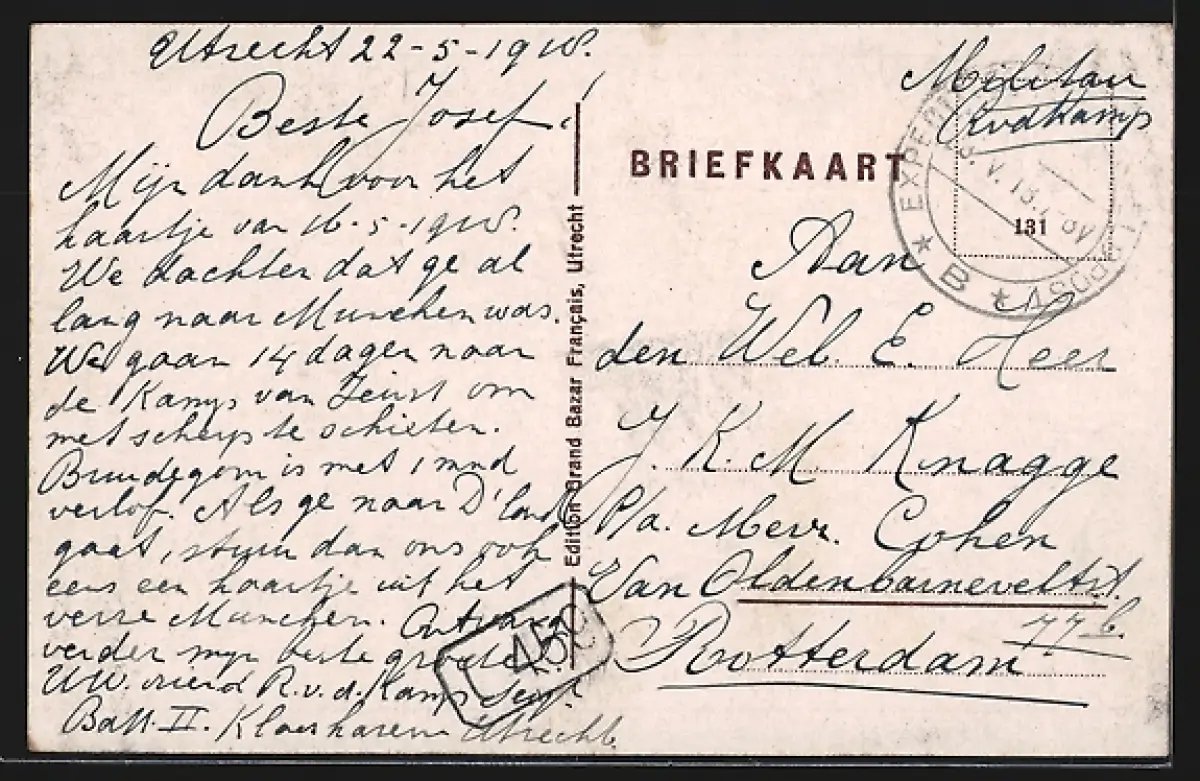 Utrecht 22-5-1918.
Beste Josef,
Mijn dank voor het
kaartje van 16-5-1918.
We dachten dat ge al
lang naar Munchen was.
We gaan 14 dagen naar
de Kamp van Zeist om
met scherp te schieten.
is met 1 mnd
verlof. Als ge naar D'land
gaat, stuur dan ons ook
eens een kaartje uit het
verre Munchen. Ontvang
verder mijn beste groeten
UW. vriend R.v.d.Kamp
Batt. II. Utrecht.
Edition Grand Bazar Français, Utrecht
BRIEFKAART
Militair
RvdKamp
131
B
Aan
den Wel. E. Heer
J. K. M. Knagge
P/a. Mevr. Cohen
Van Oldenbarneveltst.
77 b.
Rotterdam